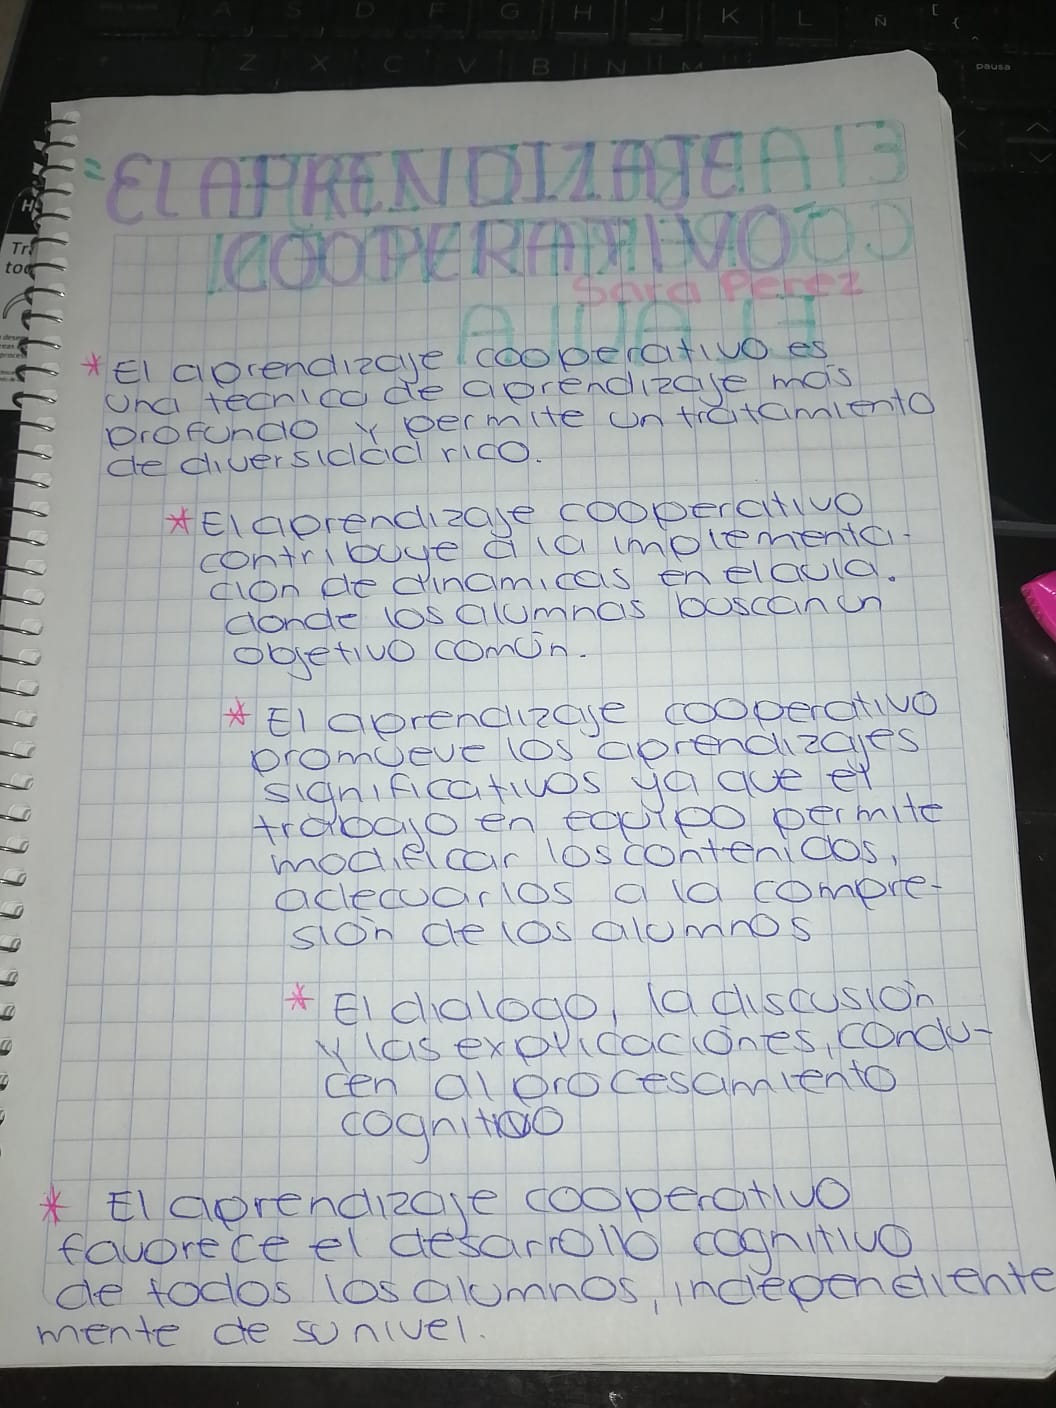 A S D F G H J K L Ñ
Z X C V B N M
pausa
EL APRENDIZAJE
COOPERATIVO
Sara Perez
* El aprendizaje cooperativo es
una tecnica de aprendizaje más
profundo y permite un tratamiento
de diversidad rico.
* El aprendizaje cooperativo
contribuye a la implementa-
cion de dinamicas en el aula.
donde los alumnas buscan un
objetivo común.
* El aprendizaje cooperativo
promueve los aprendizajes
significativos ya que el
trabajo en equipo permite
modificar los contenidos,
adecuarlos a la compre-
sión de los alumnos
* El dialogo, la discusión
y las explicaciones, condu-
cen al procesamiento
cognitivo
* El aprendizaje cooperativo
favorece el desarrollo cognitivo
de todos los alumnos, independiente
mente de su nivel.